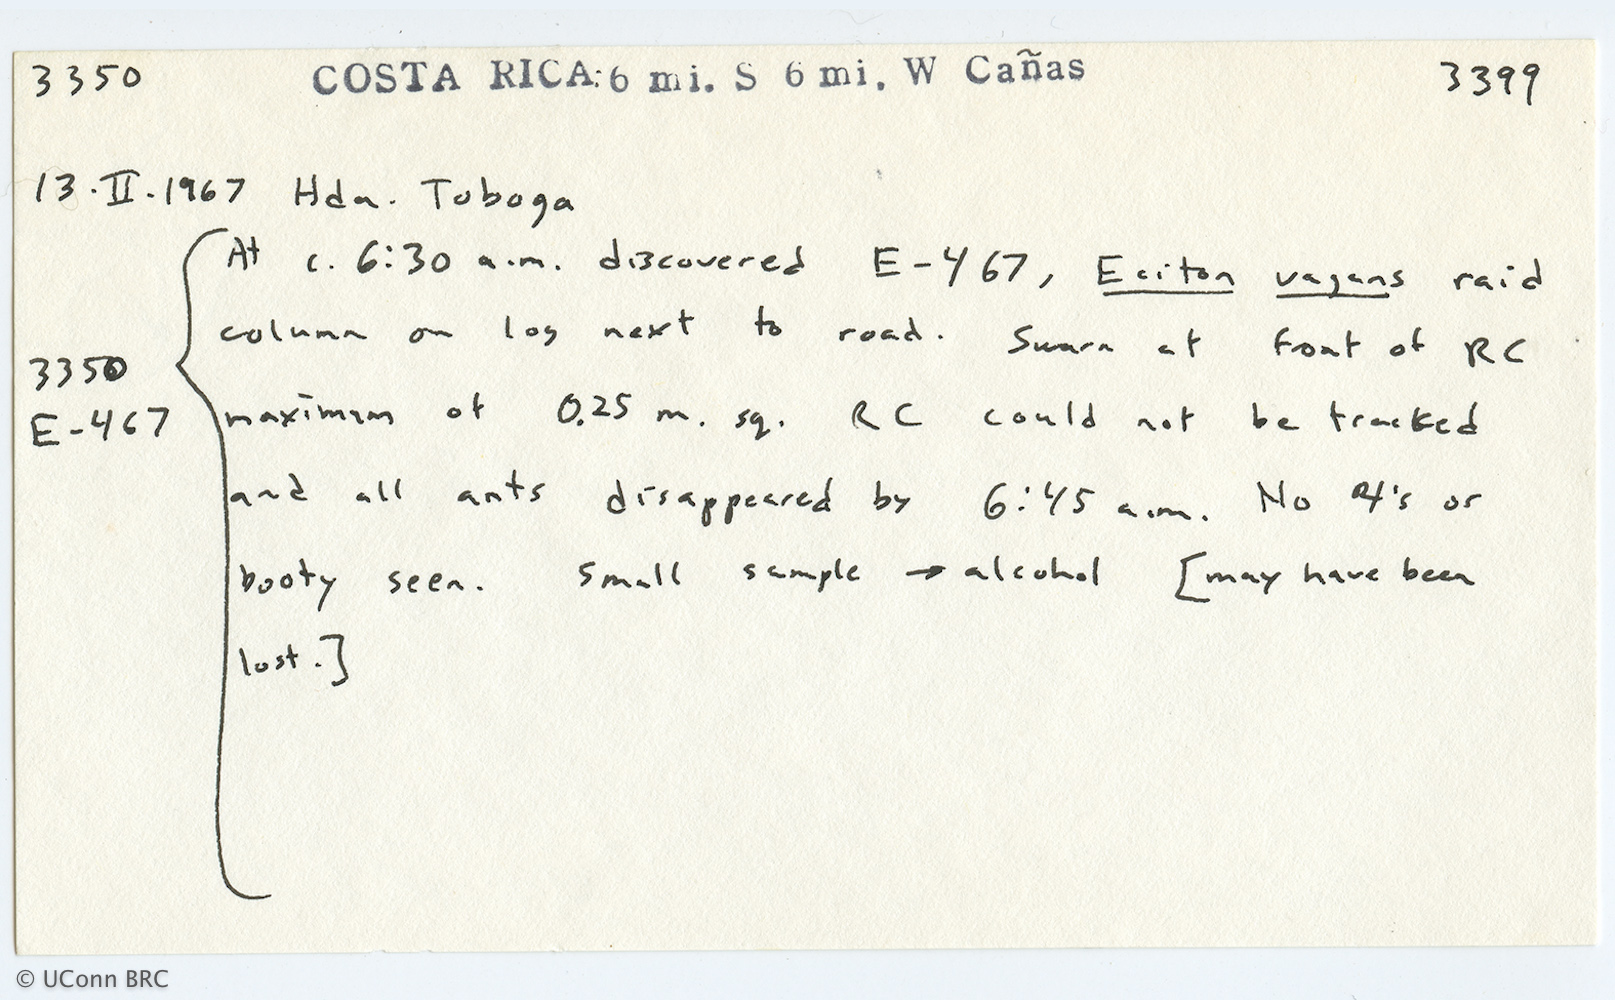 3350 COSTA RICA: 6 mi. S 6 mi. W Cañas 3399
13.II.1967 Hda. Taboga
At c. 6:30 a.m. discovered E-467, Eciton vagans raid
column on log next to road. Swarm at front of RC
3350
maximum of 0.25 m. sq. RC could not be tracked
E-467
and all ants disappeared by 6:45 a.m. No 's or
booty seen. Small sample → alcohol [may have been
lost.]
© UConn BRC